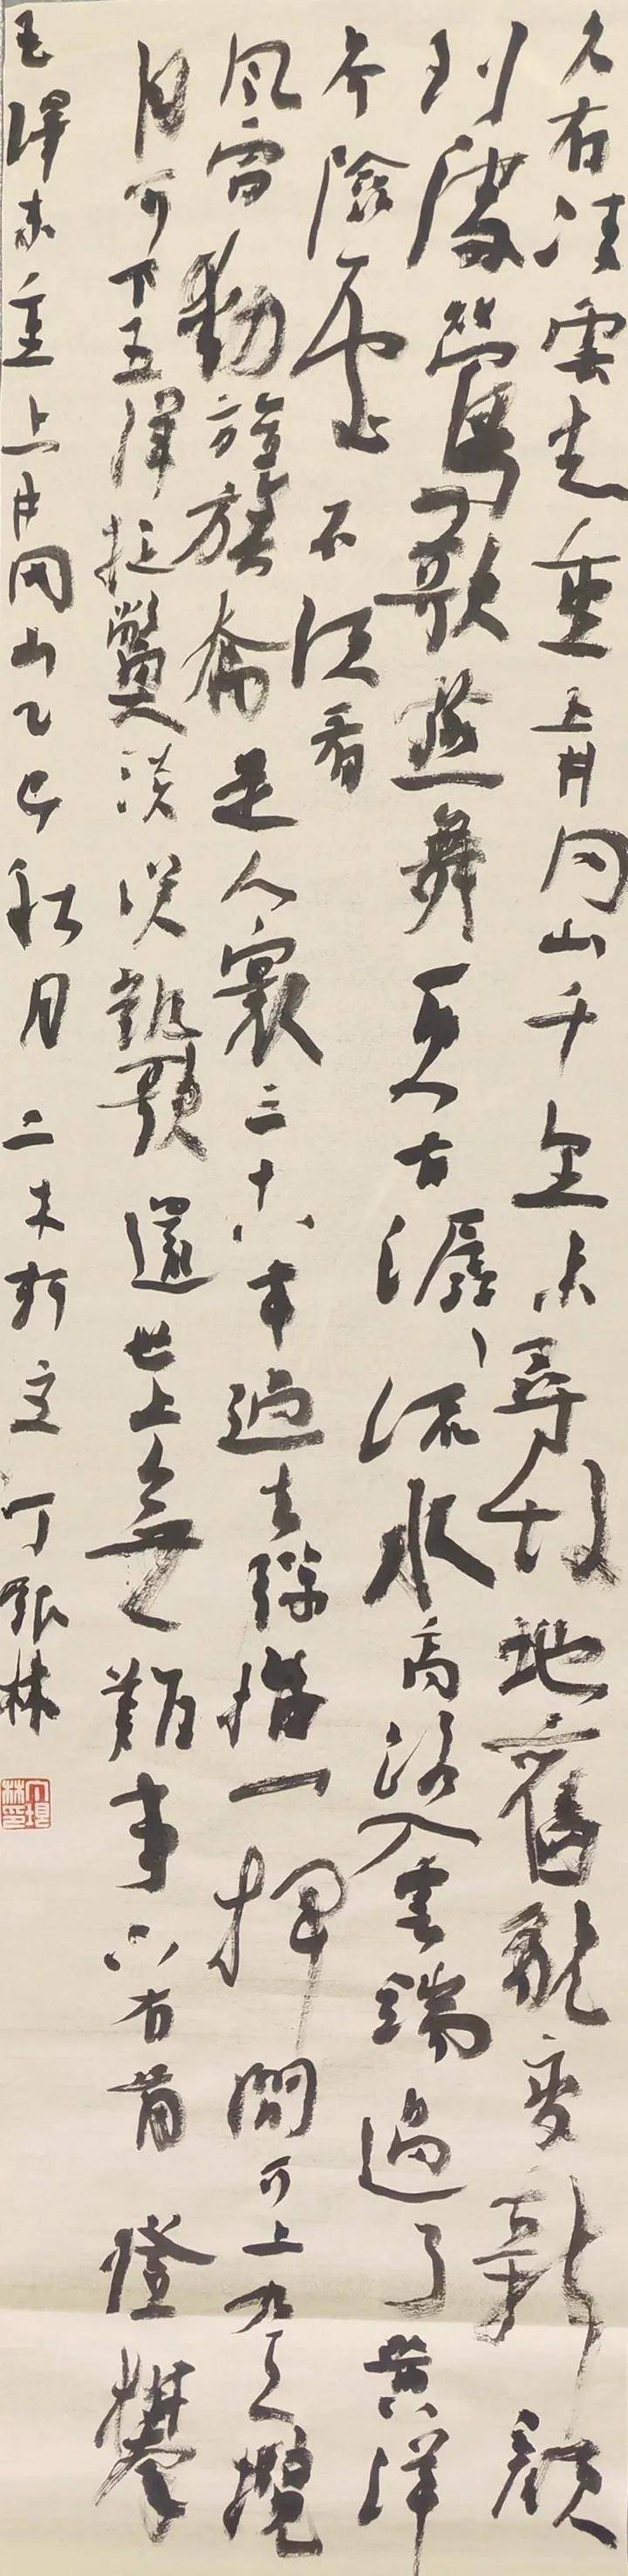 久有凌雲志重上井冈山千里来尋故地舊貌變新顔
到處鶯歌燕舞更有潺〻流水高路入雲端過了黄洋
界險處不須看
風雷動旌旗奮是人寰三十八年過去彈指一揮間可上九天攬
月可下五洋捉鱉談笑凱歌還世上無難事只有肯燈攀
毛澤东重上井冈山乙巳秋月二木軒主丁林